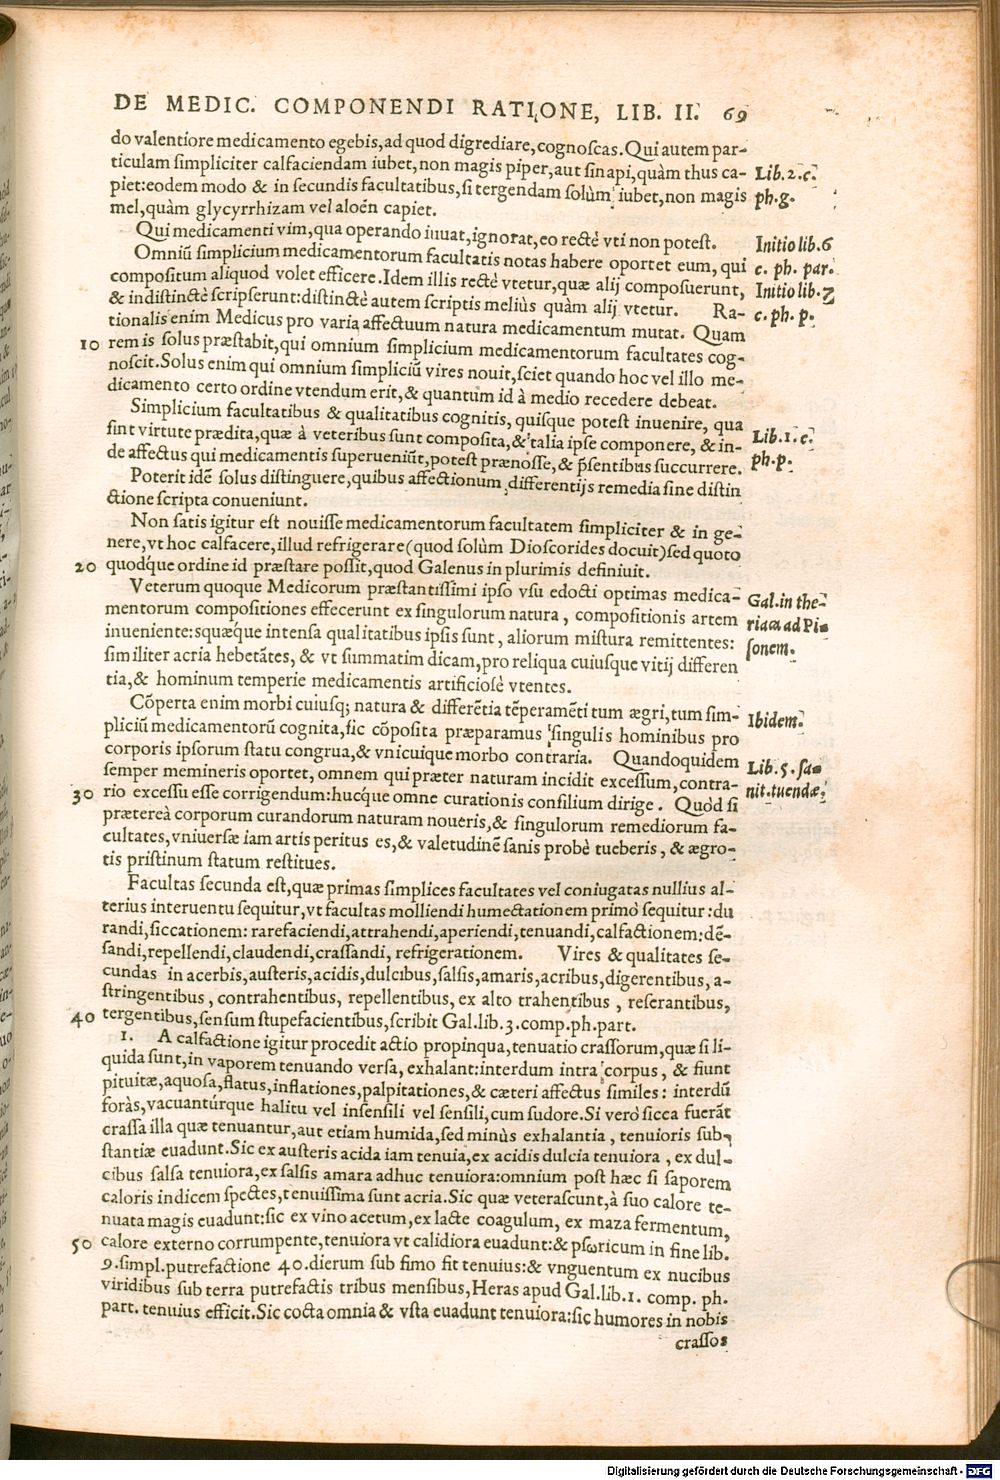 DE MEDIC. COMPONENDI RATIONE, LIB. II. 69
do valentiore medicamento egebis, ad quod digrediare, cognoscas. Qui autem par-
ticulam simpliciter calfaciendam iubet, non magis piper, aut sinapi, quàm thus ca-
Lib. 2. c.
piet: eodem modo & in secundis facultatibus, si tergendam solùm iubet, non magis
ph. g.
mel, quàm glycyrrhizam vel aloén capiet.
Qui medicamenti vim, qua operando iuuat, ignorat, eo rectè vti non potest.
Initio lib. 6
Omniũ simplicium medicamentorum facultatis notas habere oportet eum, qui
c. ph. par.
compositum aliquod volet efficere. Idem illis rectè vtetur, quæ alij composuerunt,
Initio lib. 7
& indistinctè scripserunt: distinctè autem scriptis meliùs quàm alij vtetur. Ra-
c. ph. p.
tionalis enim Medicus pro varia affectuum natura medicamentum mutat. Quam
10 rem is solus præstabit, qui omnium simplicium medicamentorum facultates cog-
noscit. Solus enim qui omnium simpliciũ vires nouit, sciet quando hoc vel illo me-
dicamento certo ordine vtendum erit, & quantùm id à medio recedere debeat.
Simplicium facultatibus & qualitatibus cognitis, quisque potest inuenire, qua
sint virtute prædita, quæ à veteribus sunt composita, & talia ipse componere, & in-
Lib. 1. c.
de affectus qui medicamentis superueniũt, potest prænosse, & p̃sentibus succurrere.
ph. p.
Poterit idẽ solus distinguere, quibus affectionum differentijs remedia sine distin
ctione scripta conueniunt.
Non satis igitur est nouisse medicamentorum facultatem simpliciter & in ge-
nere, vt hoc calfacere, illud refrigerare (quod solùm Dioscorides docuit) sed quoto
20 quodq́ue ordine id præstare possit, quod Galenus in plurimis definiuit.
Veterum quoque Medicorum præstantissimi ipso vsu edocti optimas medica-
Gal. in the-
mentorum compositiones effecerunt ex singulorum natura, compositionis artem
riaca ad Pi-
inueniente: squæq́ue intensa qualitatibus ipsis sunt, aliorum mistura remittentes:
sonem.
similiter acria hebetãtes, & vt summatim dicam, pro reliqua cuiusque vitij differen
tia, & hominum temperie medicamentis artificiosè vtentes.
Cõperta enim morbi cuiusq; natura & differẽtia tẽperamẽti tum ægri, tum sim-
Ibidem.
pliciũ medicamentorũ cognita, sic cõposita præparamus singulis hominibus pro
corporis ipsorum statu congrua, & vnicuique morbo contraria. Quandoquidem
Lib. 5. sa-
semper memineris oportet, omnem qui præter naturam incidit excessum, contra-
nit. tuendæ.
30 rio excessu esse corrigendum: hucq́ue omne curationis consilium dirige. Quòd si
prætereà corporum curandorum naturam noueris, & singulorum remediorum fa-
cultates, vniuersæ iam artis peritus es, & valetudinẽ sanis probè tueberis, & ægro-
tis pristinum statum restitues.
Facultas secunda est, quæ primas simplices facultates vel coniugatas nullius al-
terius interuentu sequitur, vt facultas molliendi humectationem primò sequitur: du
randi, siccationem: rarefaciendi, attrahendi, aperiendi, tenuandi, calfactionem: dẽ-
sandi, repellendi, claudendi, crassandi, refrigerationem. Vires & qualitates se-
cundas in acerbis, austeris, acidis, dulcibus, salsis, amaris, acribus, digerentibus, a-
stringentibus, contrahentibus, repellentibus, ex alto trahentibus, reserantibus,
40 tergentibus, sensum stupefacientibus, scribit Gal. lib. 3. comp. ph. part.
1. A calfactione igitur procedit actio propinqua, tenuatio crassorum, quæ si li-
quida sunt, in vaporem tenuando versa, exhalant: interdum intra corpus, & fiunt
pituitæ, aquosa, flatus, inflationes, palpitationes, & cæteri affectus similes: interdũ
foràs, vacuantúrque halitu vel insensili vel sensili, cum sudore. Si verò sicca fuerãt
crassa illa quæ tenuantur, aut etiam humida, sed minùs exhalantia, tenuioris sub-
stantiæ euadunt. Sic ex austeris acida iam tenuia, ex acidis dulcia tenuiora, ex dul-
cibus salsa tenuiora, ex salsis amara adhuc tenuiora: omnium post hæc si saporem
caloris indicem spectes, tenuissima sunt acria. Sic quæ veterascunt, à suo calore te-
nuata magis euadunt: sic ex vino acetum, ex lacte coagulum, ex maza fermentum,
50 calore externo corrumpente, tenuiora vt calidiora euadunt: & psωricum in fine lib.
9. simpl. putrefactione 40. dierum sub fimo fit tenuius: & vnguentum ex nucibus
viridibus sub terra putrefactis tribus mensibus, Heras apud Gal. lib. 1. comp. ph.
part. tenuius efficit. Sic cocta omnia & vsta euadunt tenuiora: sic humores in nobis
crassos
Digitalisierung gefördert durch die Deutsche Forschungsgemeinschaft - DFG